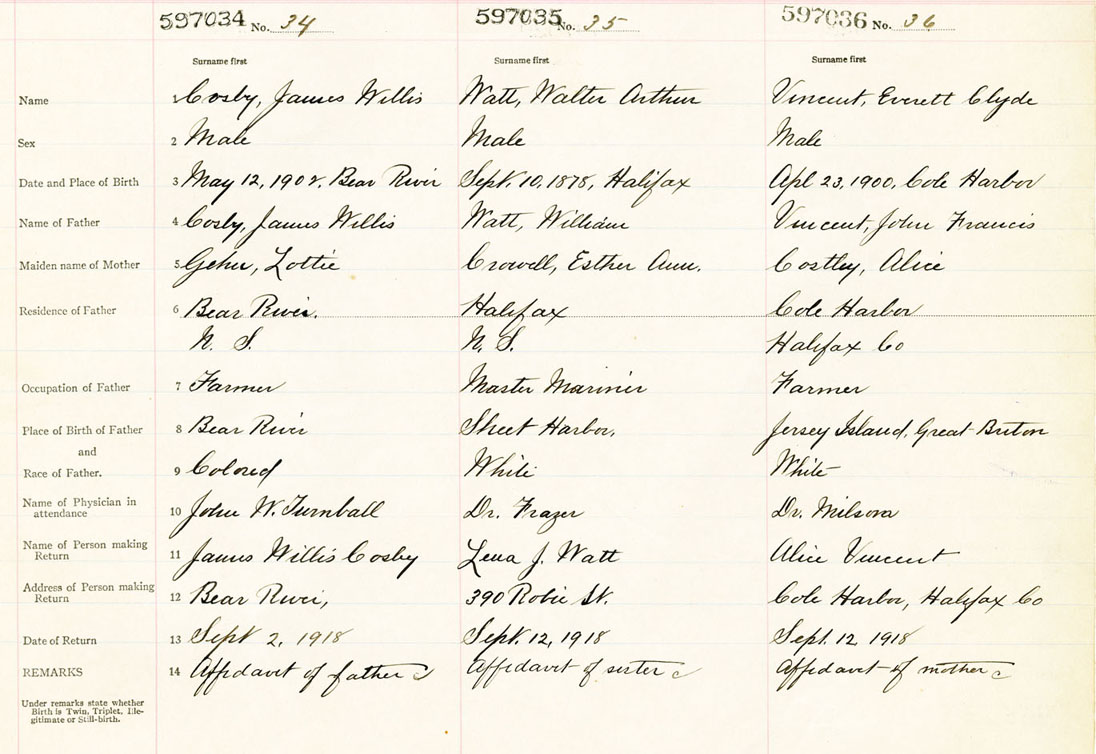 597034 No. 34 597035 No. 35 597036 No. 36
Surname first Surname first Surname first
Name 1 Cosby, James Willis Watt, Walter Arthur Vincent, Everett Clyde
Sex 2 Male Male Male
Date and Place of Birth 3 May 12, 1902. Bear River Sept. 10, 1878, Halifax Apl 23, 1900, Cole Harbor
Name of Father 4 Cosby, James Willis Watt, William Vincent, John Francis
Maiden name of Mother 5 Lottie Crowell, Esther Ann. Costley, Alice
Residence of Father 6 Bear River. Halifax Cole Harbor
N. S. N. S. Halifax Co
Occupation of Father 7 Farmer Master Mariner Farmer
Place of Birth of Father 8 Bear River Sheet Harbor, Jersey Island, Great Briton
and
Race of Father. 9 Colored White White
Name of Physician in
attendance 10 John W. Turnball Dr. Frazer Dr.
Name of Person making
Return 11 James Willis Cosby Lena J. Watt Alice Vincent
Address of Person making
Return 12 Bear River, 390 Robie St. Cole Harbor, Halifax Co
Date of Return 13 Sept 2, 1918 Sept. 12, 1918 Sept. 12, 1918
REMARKS 14 Affidavit of father Affidavit of sister Affidavit of mother
Under remarks state whether
Birth is Twin, Triplet, Ille-
gitimate or Still-birth.